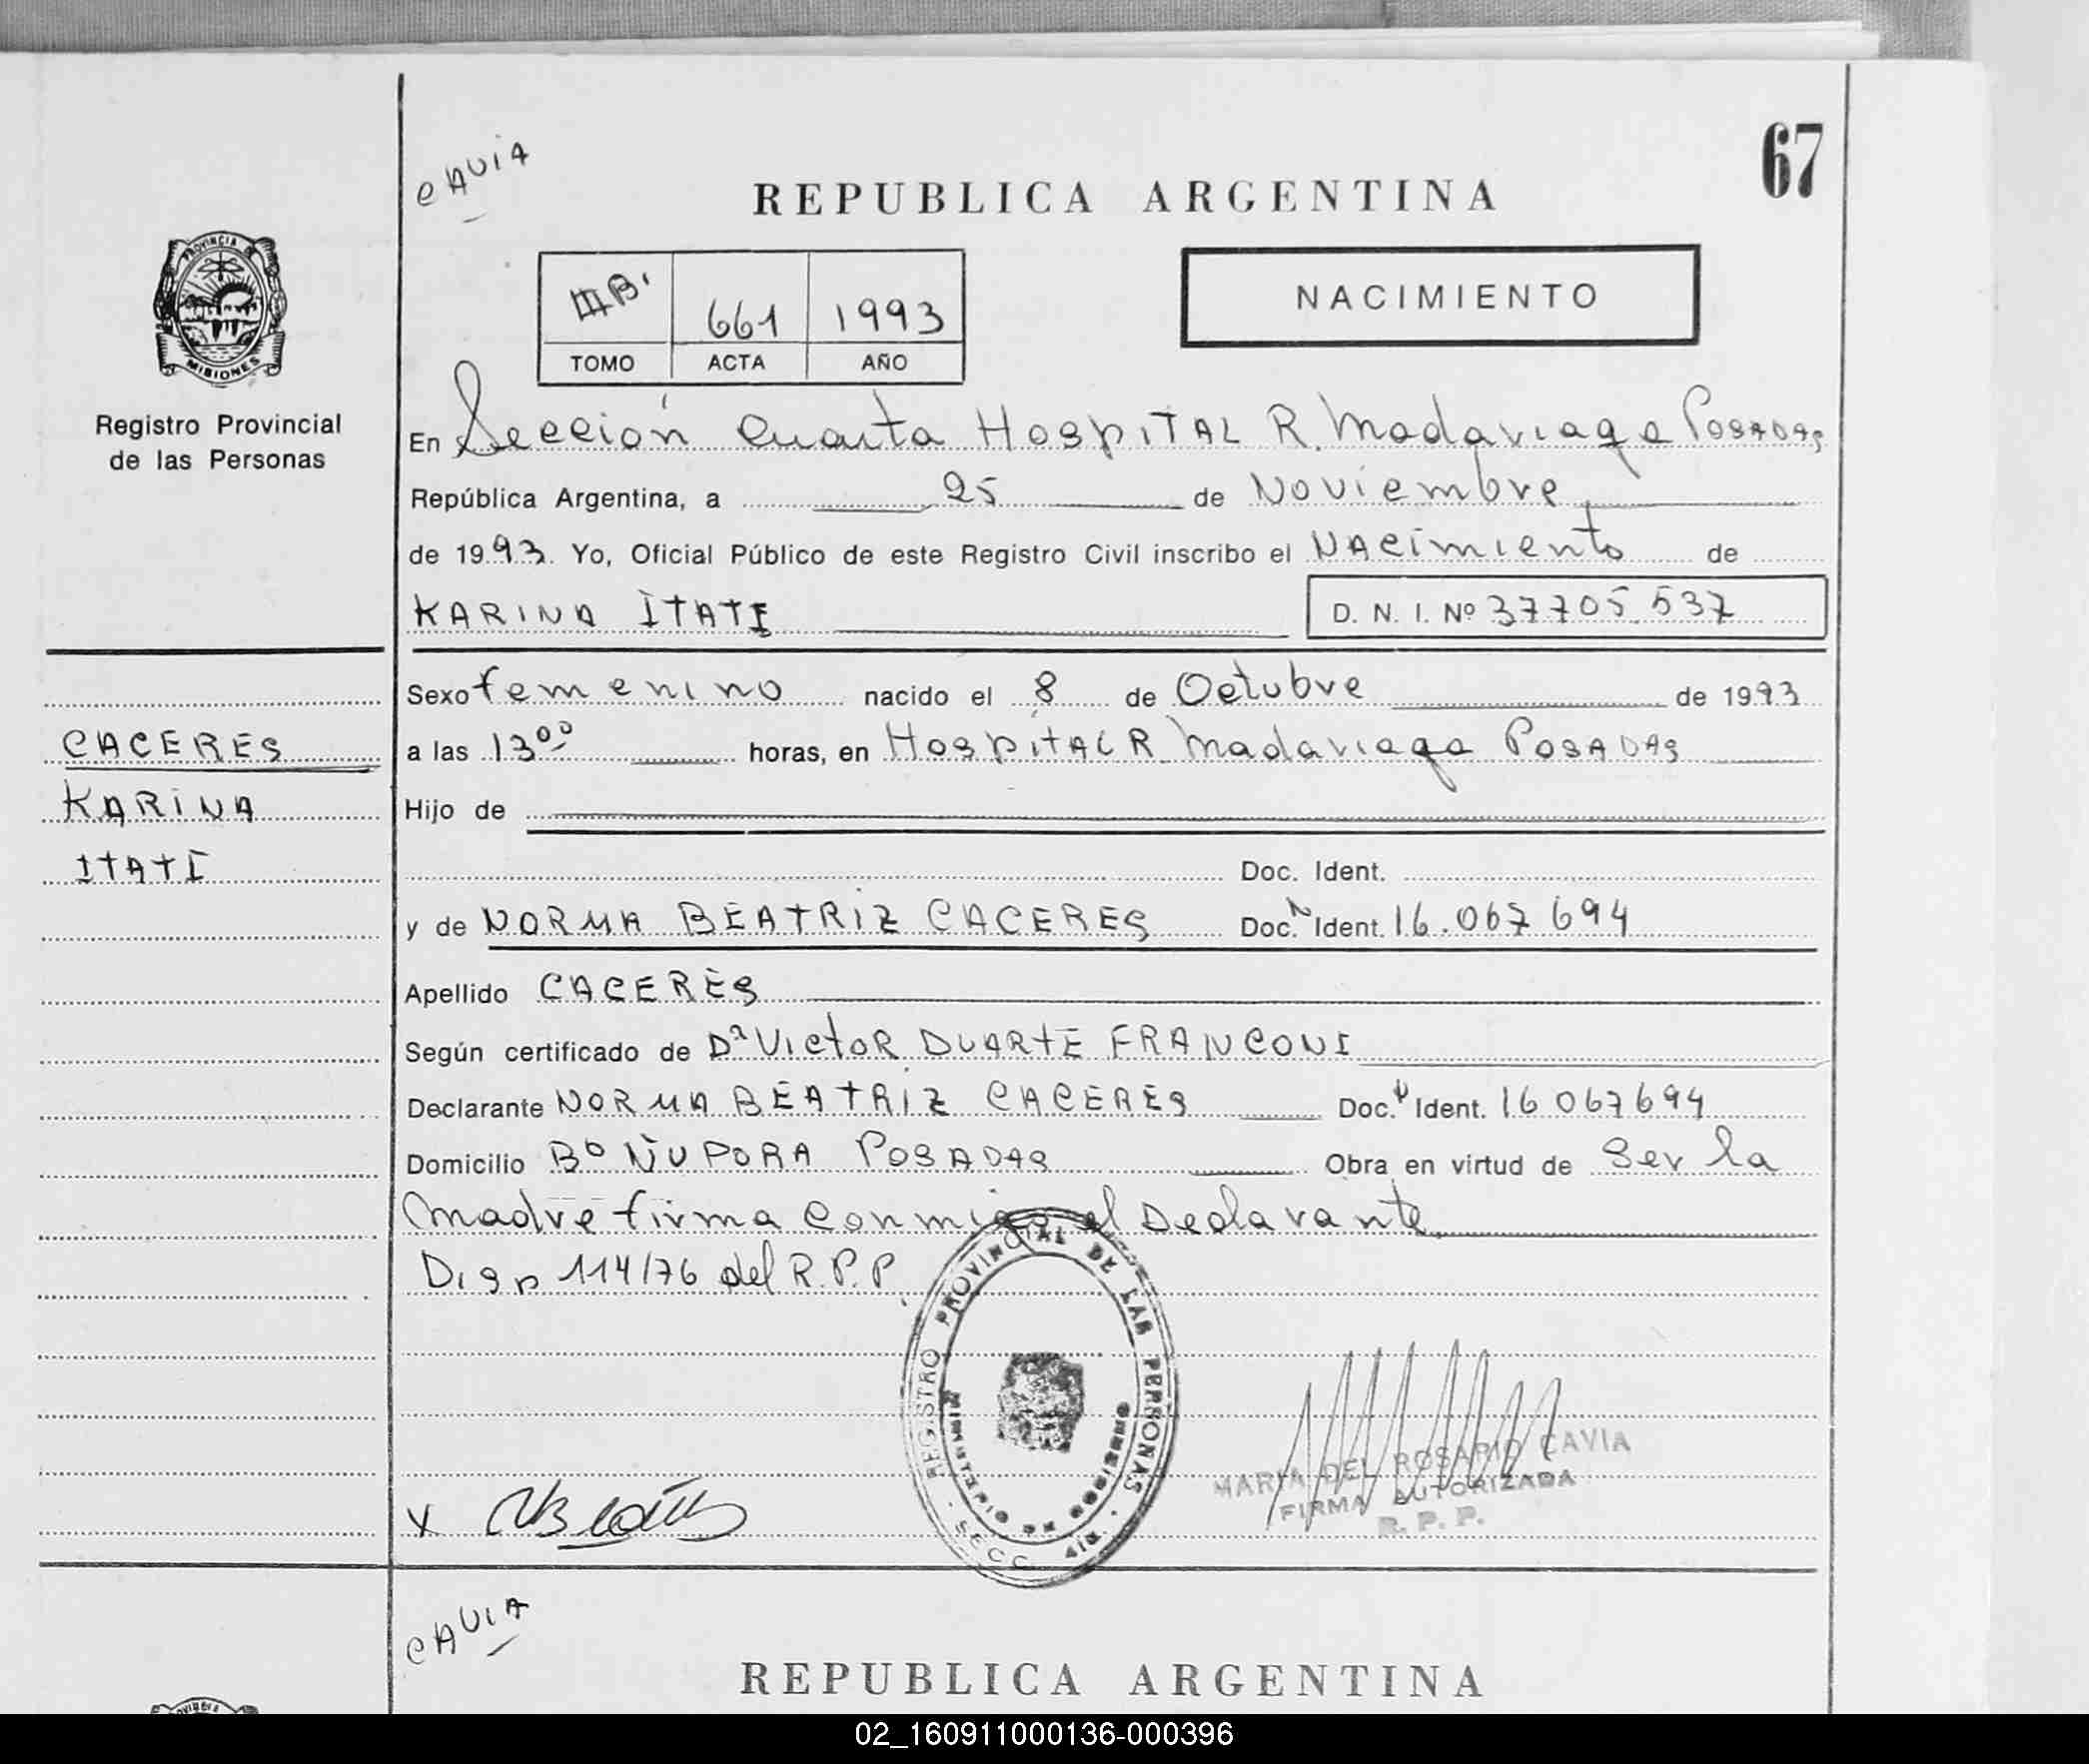 CAVIA
67
REPUBLICA ARGENTINA
PROVINCIA DE
MISIONES
Registro Provincial
de las Personas
III B.
661
1993
TOMO
ACTA
AÑO
NACIMIENTO
En Sección Cuarta Hospital R. Madariaga Posadas
República Argentina, a 25 de Noviembre
de 1993. Yo, Oficial Público de este Registro Civil inscribo el Nacimiento de
KARINA ITATI
D. N. I. Nº 37705.537
Sexo femenino nacido el 8 de Octubre de 1993
CACERES
a las 13⁰⁰ horas, en Hospital R. Madariaga Posadas
KARINA
Hijo de
ITATI
Doc. Ident.
y de NORMA BEATRIZ CACERES Doc. N Ident. 16.067 694
Apellido CACERES
Según certificado de Dª Victor DUARTE FRANCONI
Declarante NORMA BEATRIZ CACERES Doc. Ident. 16 067694
Domicilio Bº ÑU PORA POSADAS Obra en virtud de Ser la
Madre firma conmigo el Declarante
Disp 114/76 del R.P.P.
REGISTRO PROVINCIAL DE LAS PERSONAS
MINISTERIO DE GOBIERNO
SECC. 4ta.
MARIA DEL ROSARIO CAVIA
FIRMA AUTORIZADA
R. P. P.
X
CAVIA
REPUBLICA ARGENTINA
02_160911000136-000396